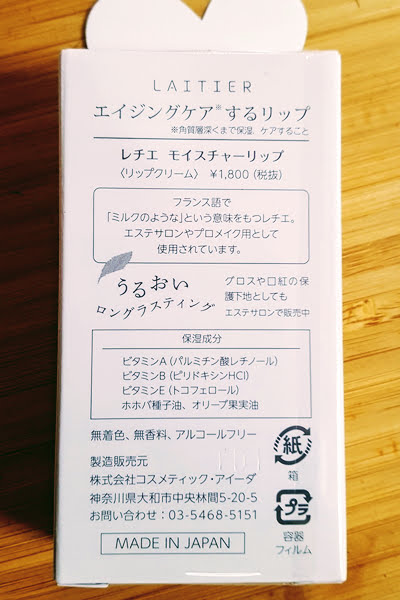 LAITIER
エイジングケア※するリップ
※角質層深くまで保湿、ケアすること
レチエ モイスチャーリップ
〈リップクリーム〉 ¥1,800（税抜）
フランス語で
「ミルクのような」という意味をもつレチエ。
エステサロンやプロメイク用として
使用されています。
うるおい
ロングラスティング
グロスや口紅の保
護下地としても
エステサロンで販売中
保湿成分
ビタミンA（パルミチン酸レチノール）
ビタミンB（ピリドキシンHCl）
ビタミンE（トコフェロール）
ホホバ種子油、オリーブ果実油
無着色、無香料、アルコールフリー
製造販売元
株式会社コスメティック・アイーダ
神奈川県大和市中央林間5-20-5
お問い合わせ：03-5468-5151
MADE IN JAPAN
紙
箱
プラ
容器
フィルム